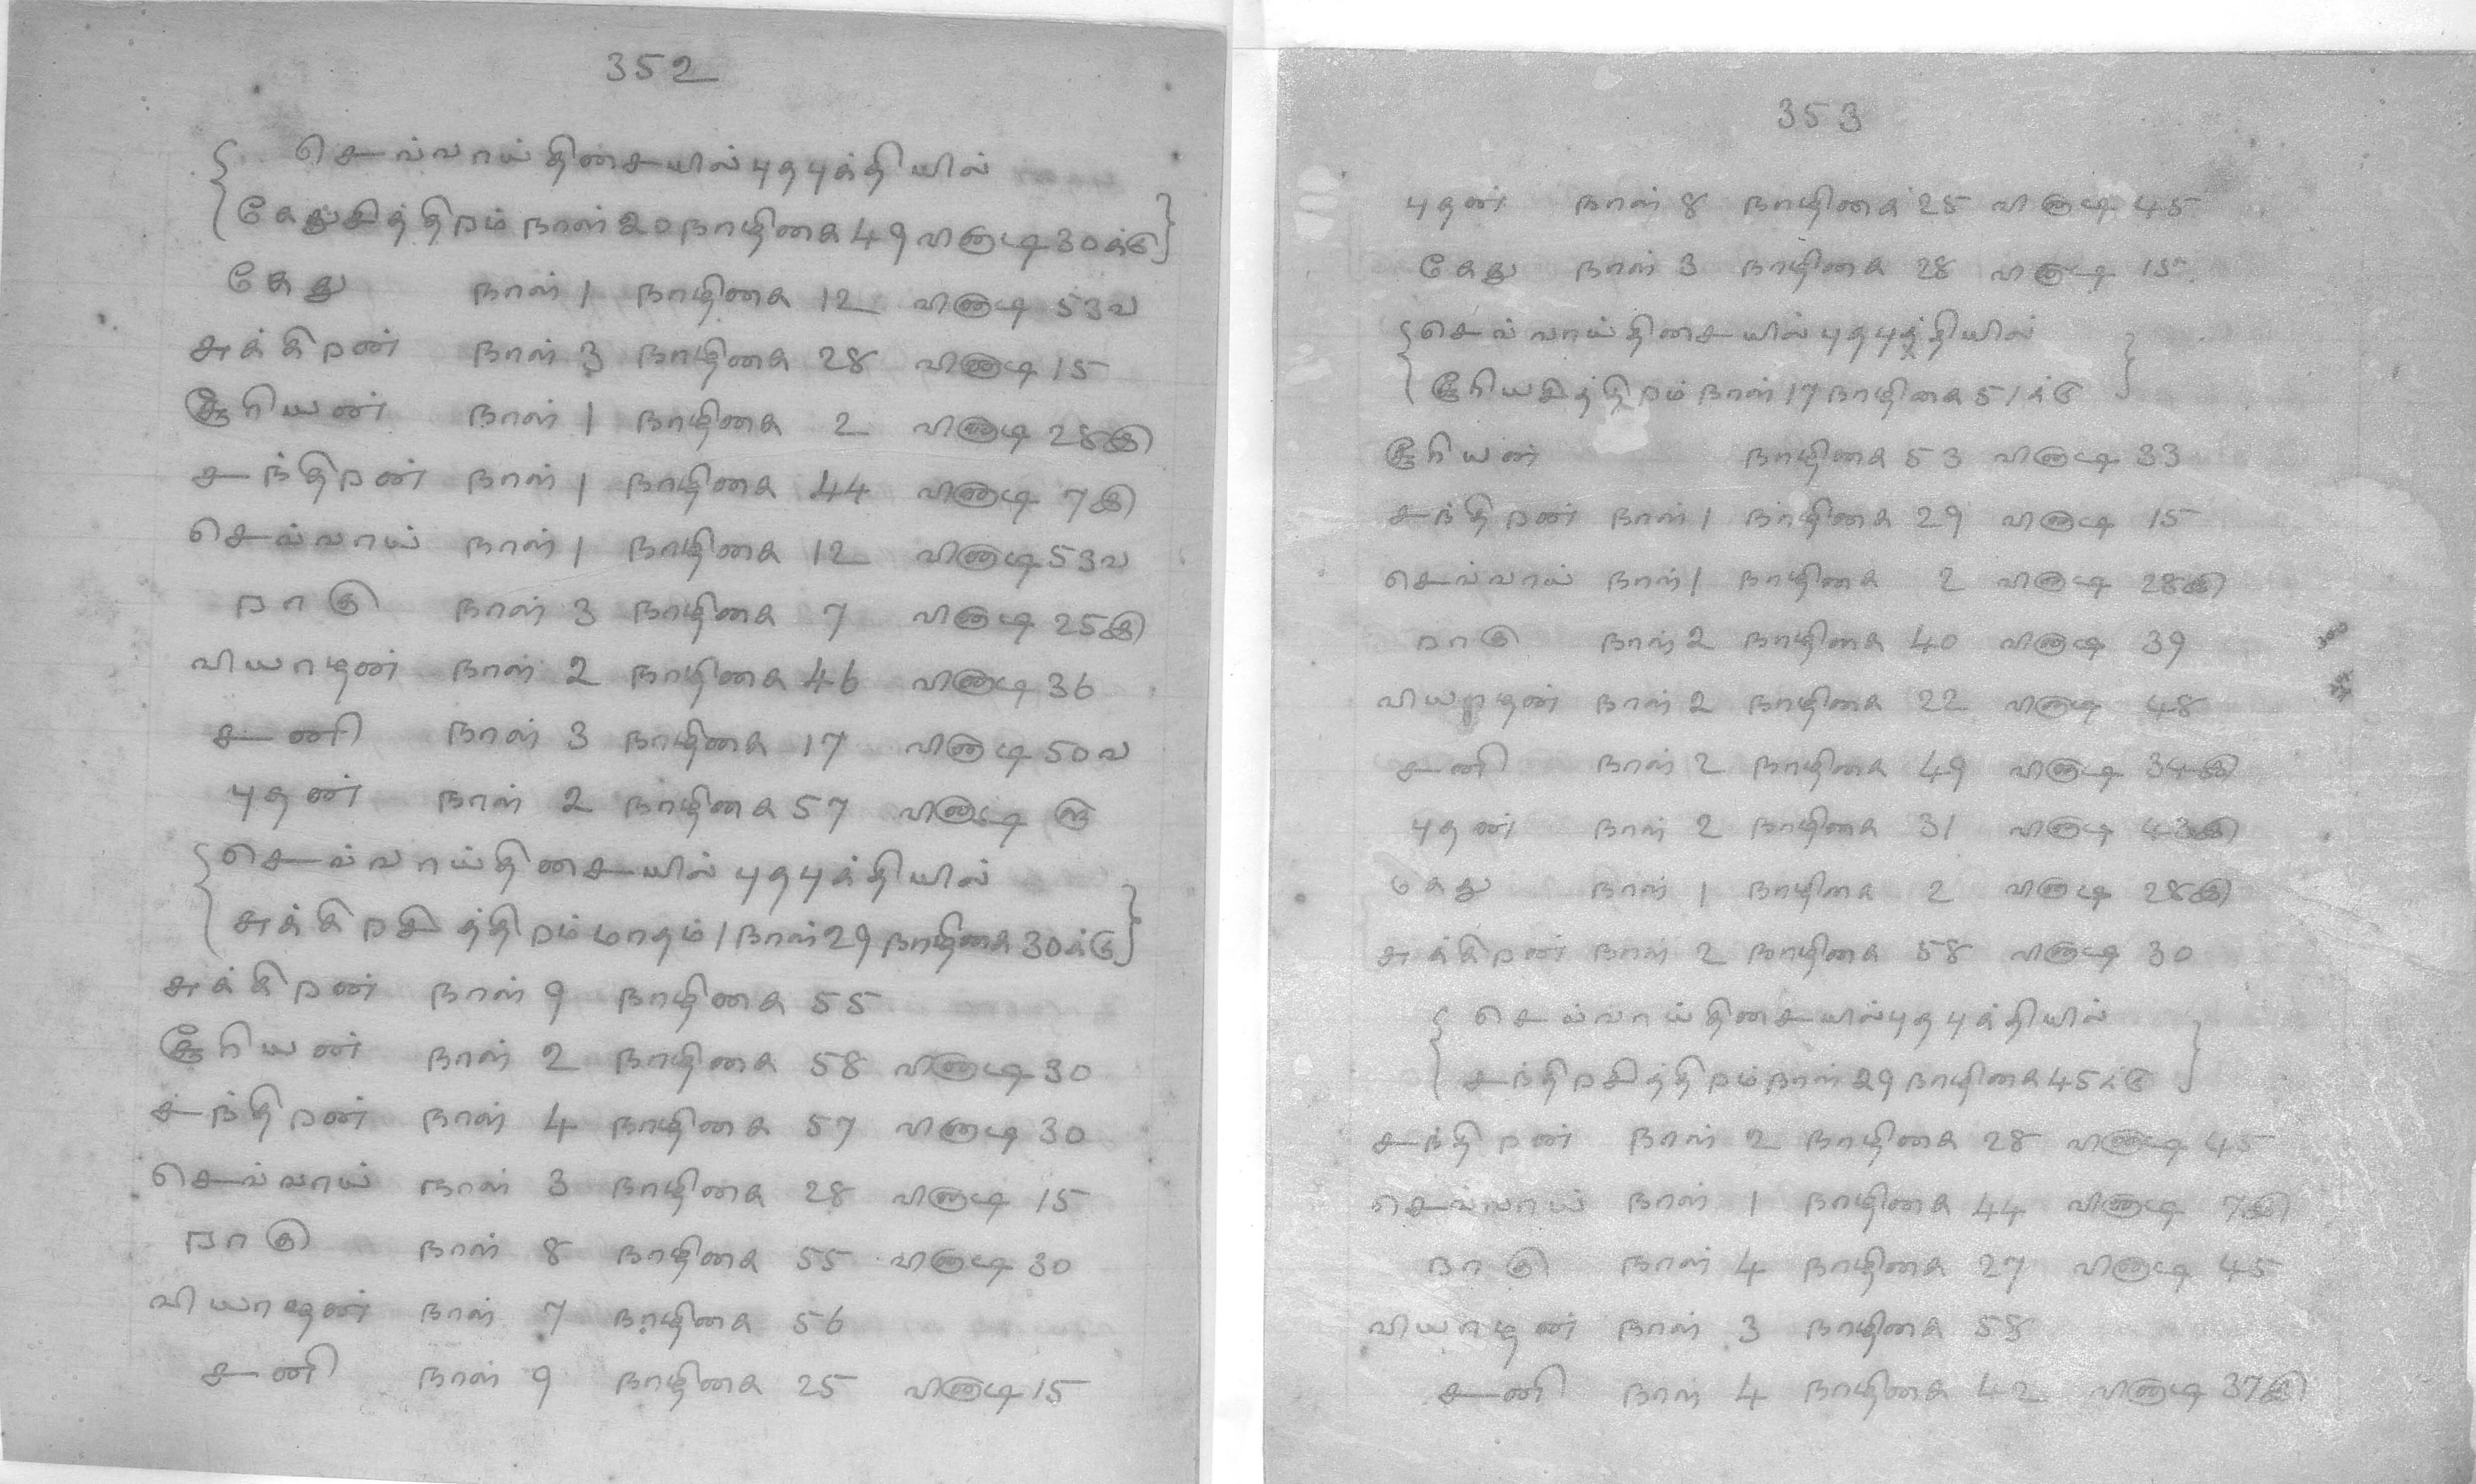 352
{ செவ்வாய் திசையில் புதபுக்தியில்
{ கேதுசித்திரம் நாள் 20 நாழிகை 49 வினாடி 30க்கு }
கேது நாள் 1 நாழிகை 12 வினாடி 53வ
சுக்கிரன் நாள் 3 நாழிகை 28 வினாடி 15
சூரியன் நாள் 1 நாழிகை 2 வினாடி 28இ
சந்திரன் நாள் 1 நாழிகை 44 வினாடி 7இ
செவ்வாய் நாள் 1 நாழிகை 12 வினாடி 53வ
ராகு நாள் 3 நாழிகை 7 வினாடி 25இ
வியாழன் நாள் 2 நாழிகை 46 வினாடி 36
சனி நாள் 3 நாழிகை 17 வினாடி 50வ
புதன் நாள் 2 நாழிகை 57 வினாடி
{ செவ்வாய் திசையில் புதபுக்தியில்
{ சுக்கிரசித்திரம் மாதம் 1 நாள் 29 நாழிகை 30க்கு }
சுக்கிரன் நாள் 9 நாழிகை 55
சூரியன் நாள் 2 நாழிகை 58 வினாடி 30
சந்திரன் நாள் 4 நாழிகை 57 வினாடி 30
செவ்வாய் நாள் 3 நாழிகை 28 வினாடி 15
ராகு நாள் 8 நாழிகை 55 வினாடி 30
வியாழன் நாள் 7 நாழிகை 56
சனி நாள் 9 நாழிகை 25 வினாடி 15
353
புதன் நாள் 8 நாழிகை 25 வினாடி 45
கேது நாள் 3 நாழிகை 28 வினாடி 15
{ செவ்வாய் திசையில் புதபுத்தியில் }
{ சூரியசித்திரம் நாள் 17 நாழிகை 51க்கு }
சூரியன் நாழிகை 53 வினாடி 33
சந்திரன் நாள் 1 நாழிகை 29 வினாடி 15
செவ்வாய் நாள் 1 நாழிகை 2 வினாடி 28இ
ராகு நாள் 2 நாழிகை 40 வினாடி 39
வியாழன் நாள் 2 நாழிகை 22 வினாடி 48
சனி நாள் 2 நாழிகை 49 வினாடி 34இ
புதன் நாள் 2 நாழிகை 31 வினாடி 43இ
கேது நாள் 1 நாழிகை 2 வினாடி 28இ
சுக்கிரன் நாள் 2 நாழிகை 58 வினாடி 30
{ செவ்வாய் திசையில் புதபுக்தியில் }
{ சந்திரசித்திரம் நாள் 29 நாழிகை 45க்கு }
சந்திரன் நாள் 2 நாழிகை 28 வினாடி 45
செவ்வாய் நாள் 1 நாழிகை 44 வினாடி 7இ
ராகு நாள் 4 நாழிகை 27 வினாடி 45
வியாழன் நாள் 3 நாழிகை 58
சனி நாள் 4 நாழிகை 42 வினாடி 37இ